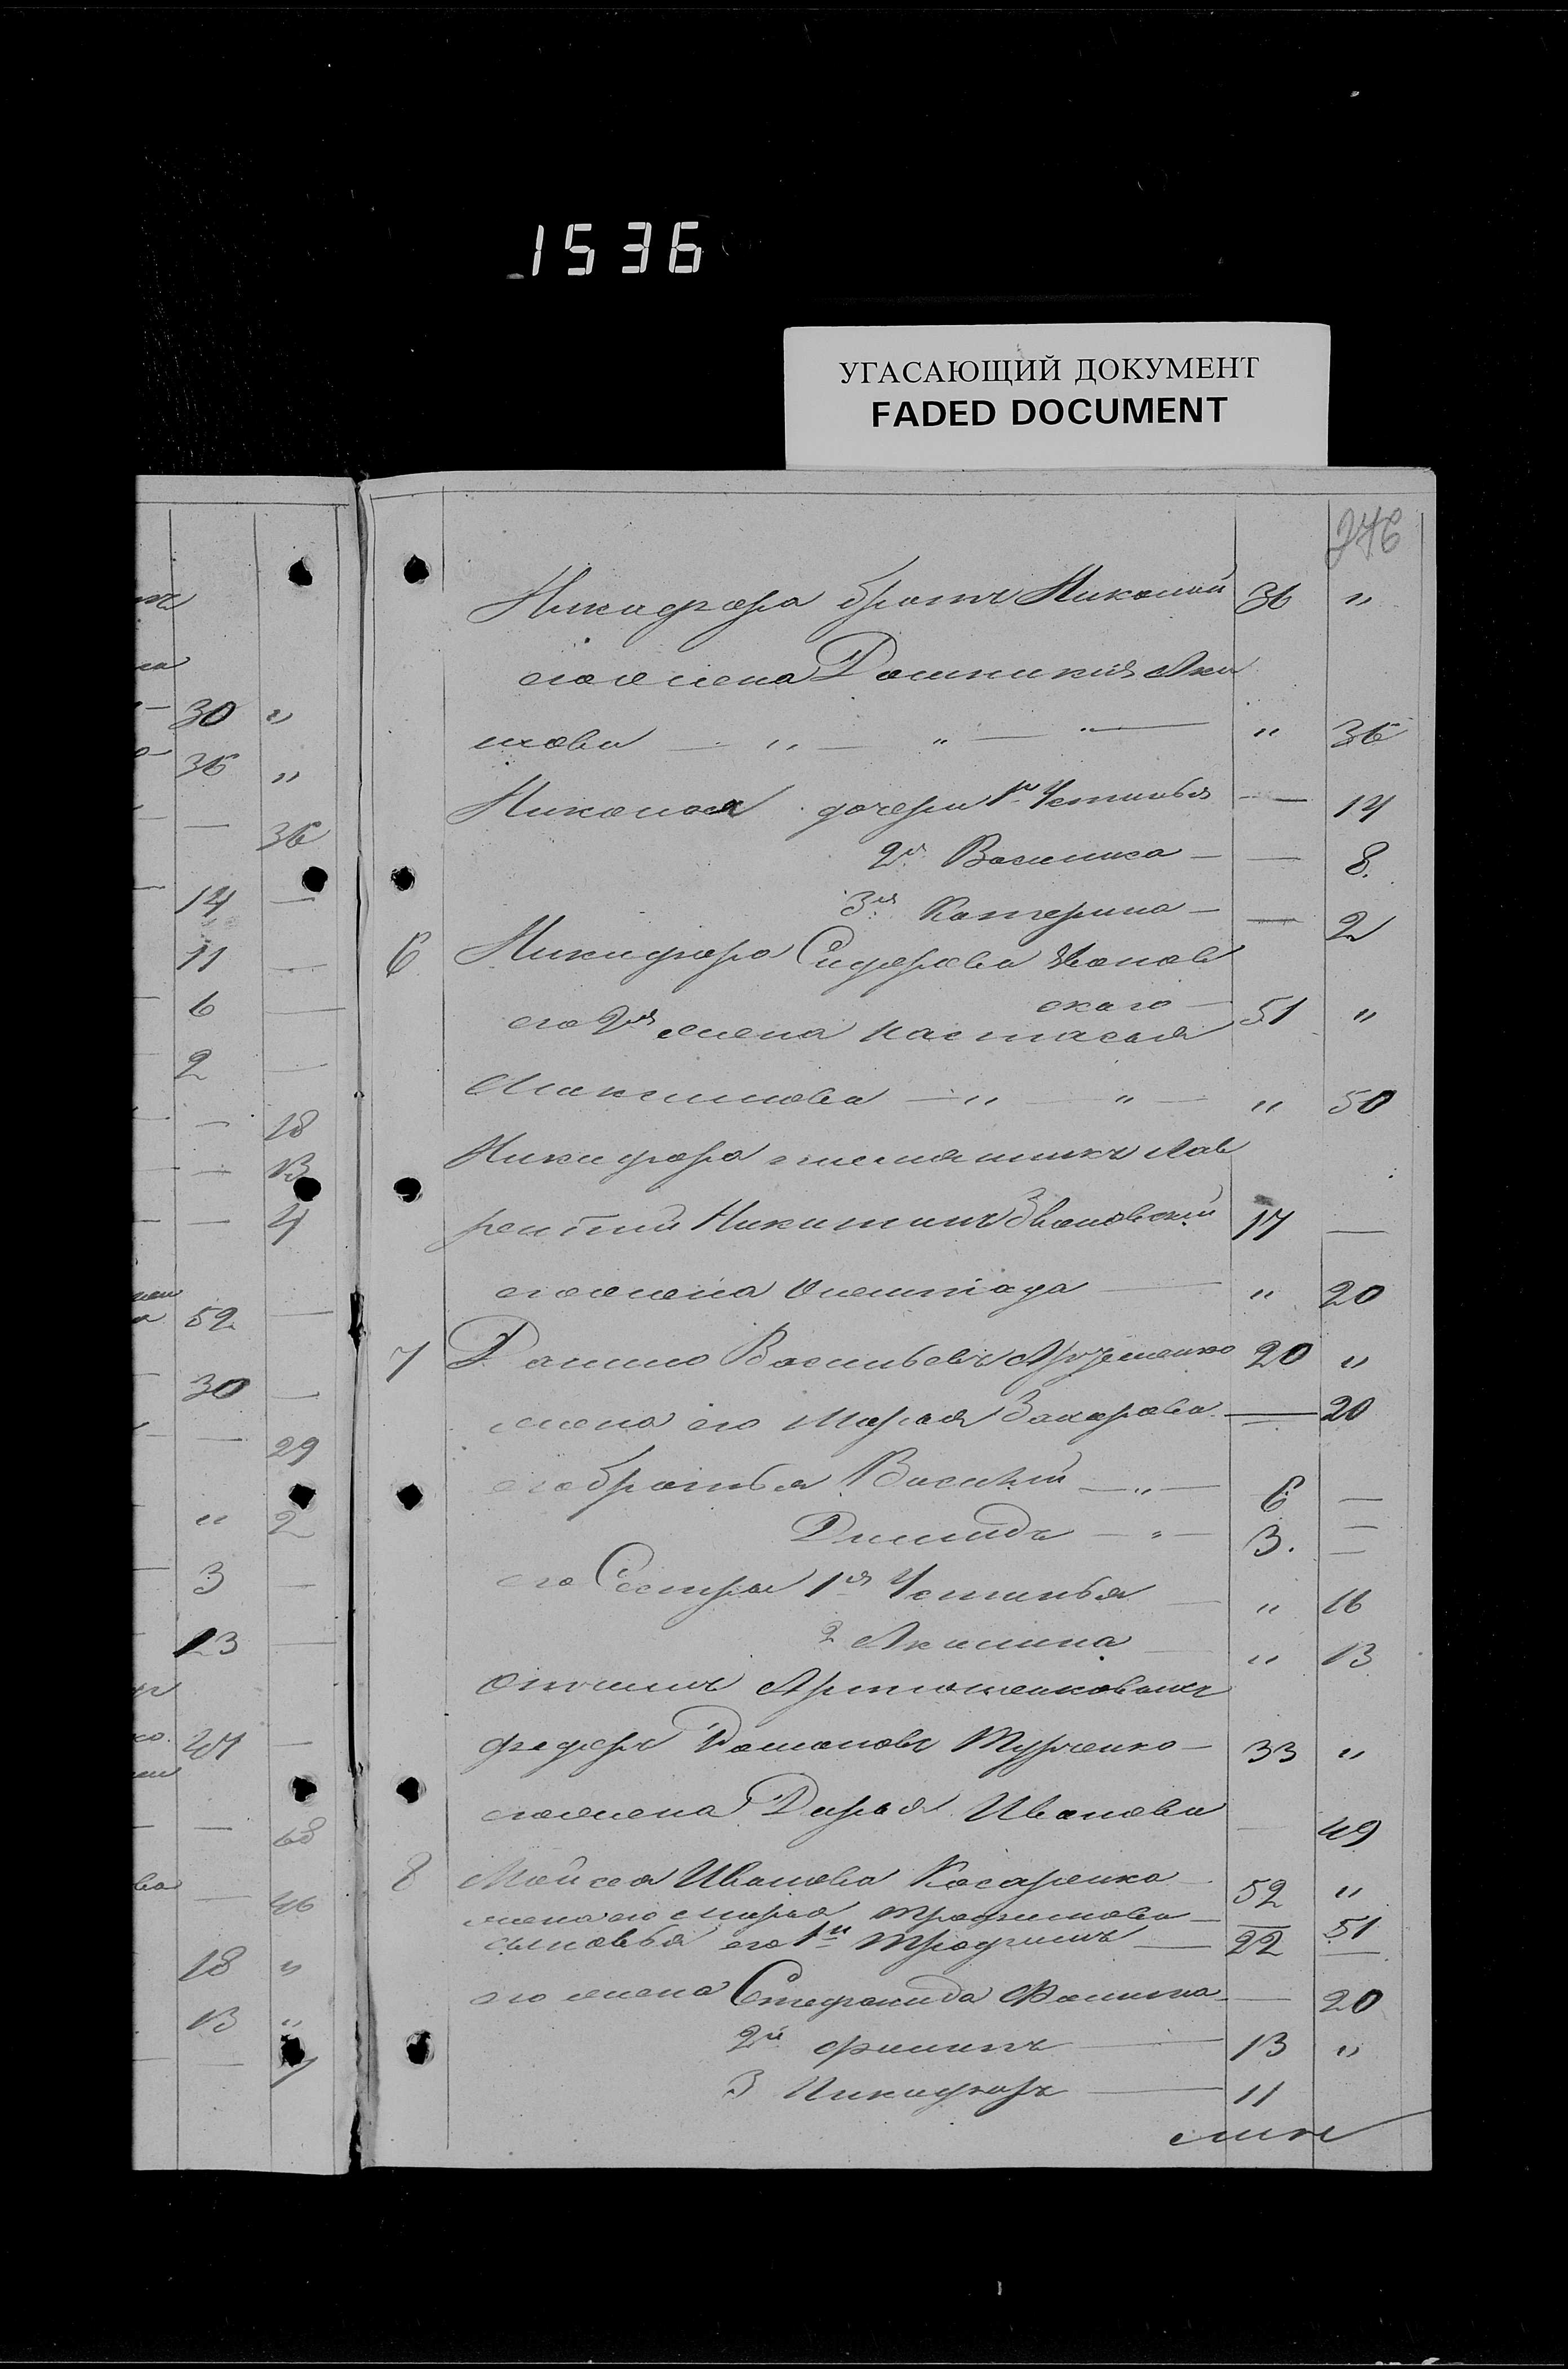 1536
УГАСАЮЩИЙ ДОКУМЕНТ
FADED DOCUMENT
276
Никифора братъ Николай 36 "
его жена Домникія Яки
мова — " — " — " 36
Николая дочери 1я Устинья — 14
2я Василиса — — 8.
3я Катерина — — 2
6 Никифора Сидорова Звонов
скаго — 51 "
его 2я жена Настасья
Максимова — " — " — " 50
Никифора племянникъ Лав
рентий Никитинъ Звоновский 17 —
его жена — " 20
7 Данило Васильевъ 20 "
жена его Марья Захарова — 20
его братья Василий — " — 6 —
Димидъ — " — 3. —
его Сестры 1я Устинья — " 16
2 Акилина — " 13
Отчимъ Артюшенковыхъ
Федоръ Романовъ Турченко — 33 "
его жена Дарья Иванова — 49
8 Мойсея Иванова Косаренко — 52 "
жена его Марья Трофимова — 51
сыновья его 1й Трофимъ — 22 —
его жена Стефанида Фомина — 20
2й Филипъ — 13 "
3 Никифоръ — 11
30 "
36 "
— 36
14 —
11 —
6 —
2 —
— 18
— 13
— 4
52 —
30 —
— 29
" 2
3 —
23 —
27 —
— 68
— 46
18 "
13 "